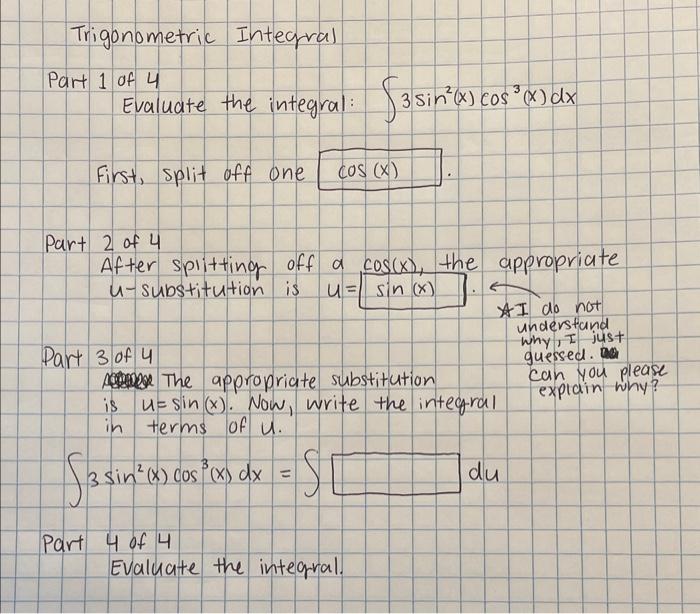 Trigonometric Integral
Part 1 of 4
Evaluate the integral: ∫3 sin²(x) cos³(x) dx
First, split off one cos (x).
Part 2 of 4
After splitting off a cos(x), the appropriate
u-substitution is u= sin (x).
☆I do not
understand
why, I just
guessed.
can you please
explain why?
Part 3 of 4
The appropriate substitution
is u= sin(x). Now, write the integral
in terms of u.
∫3 sin²(x) cos³(x) dx = ∫ du
Part 4 of 4
Evaluate the integral.